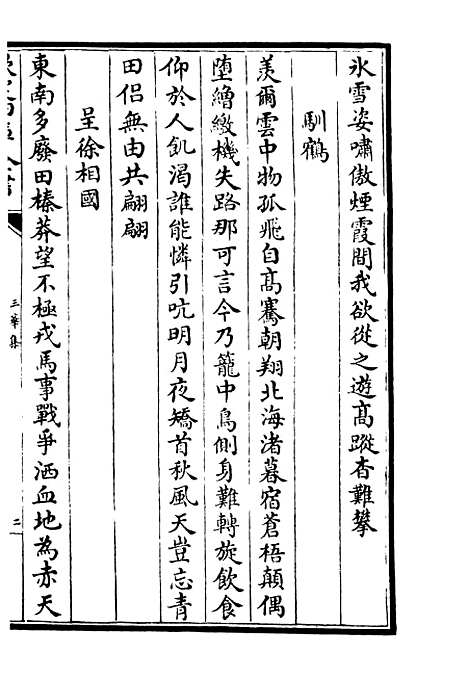 氷雪姿嘯傲煙霞間我欲從之遊髙蹤杳難攀
馴鶴
羨爾雲中物孤飛自髙騫朝翔北海渚暮宿蒼梧顛偶
墮繒繳機失路那可言今乃籠中鳥側身難轉旋飲食
仰於人飢渴誰能憐引吭明月夜矯首秋風天豈忘青
田侣無由共翩翩
呈徐相國
東南多廢田榛莽望不極戎馬事戰爭洒血地為赤天
三華集
二